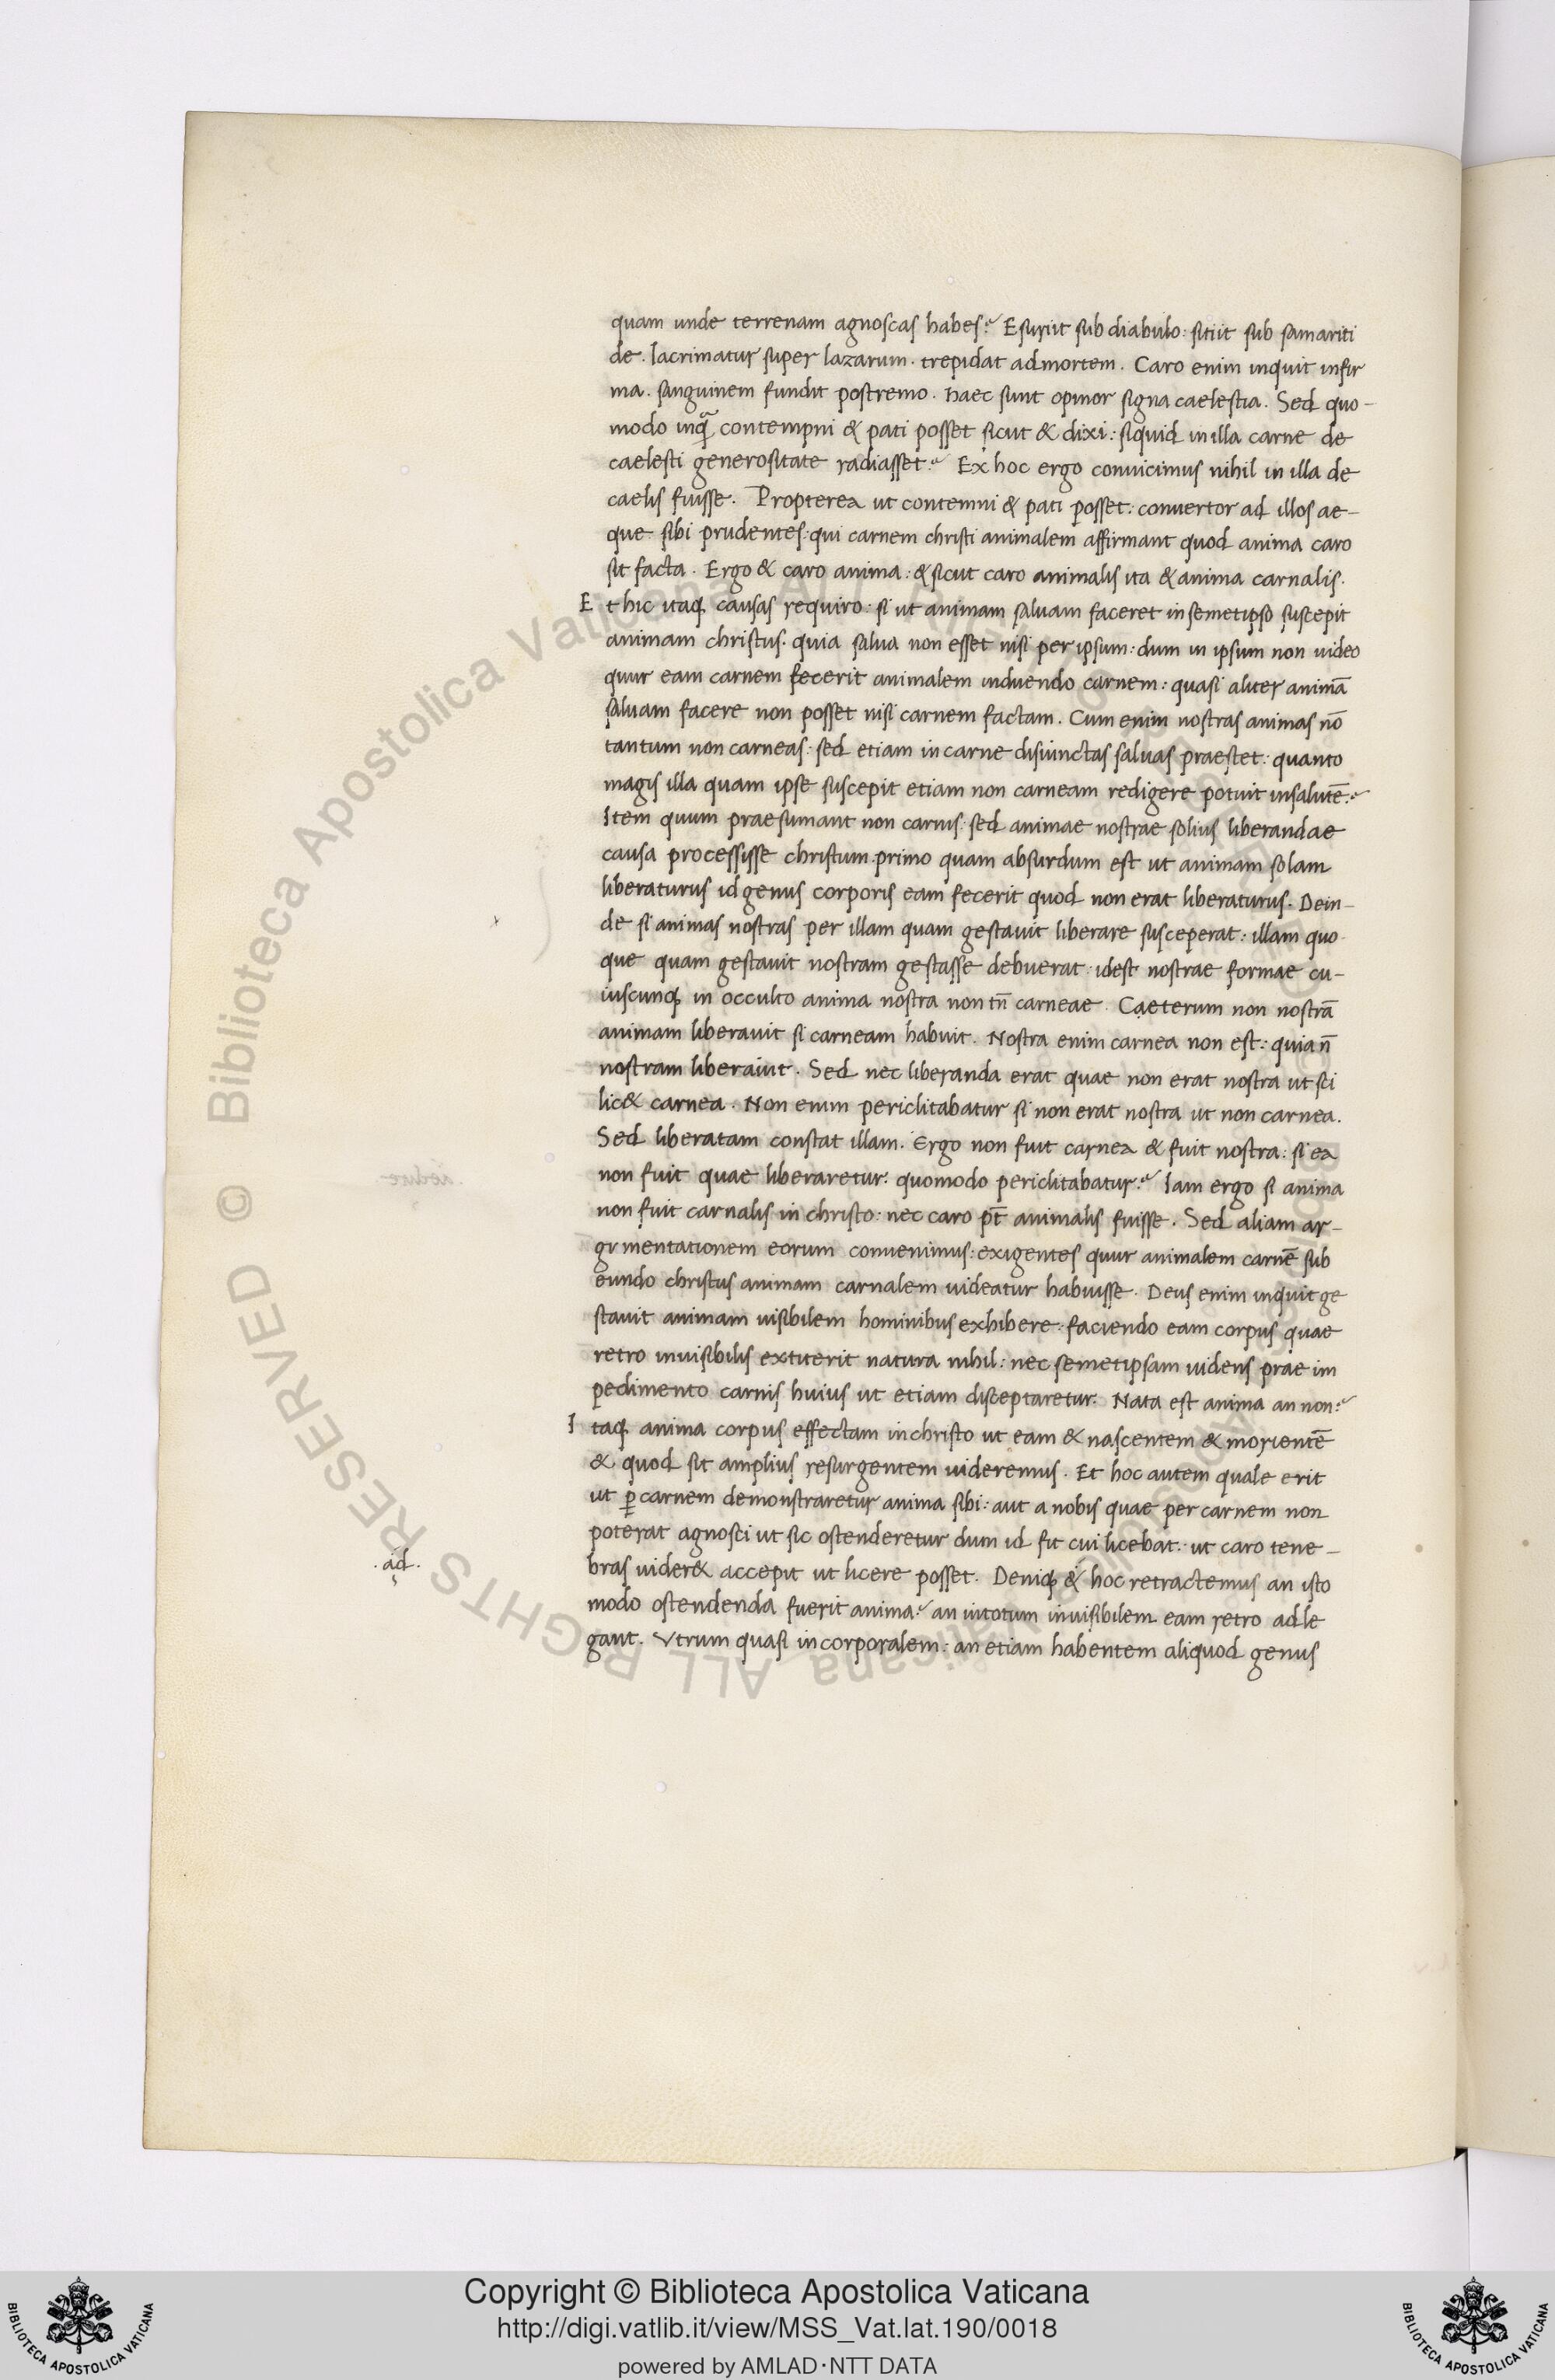 quam unde terrenam agnoscas habes? Esuriit sub diabulo: sitiit sub samariti
de. lacrimatur super lazarum. trepidat ad mortem. Caro enim inquit infir
ma. sanguinem fundit postremo. haec sunt opinor signa caelestia. Sed quo-
modo inqͣ contempni & pati posset sicut & dixi: siquid in illa carne de
caelesti generositate radiasset? Ex hoc ergo conuicimus nihil in illa de
caelis fuisse. Propterea ut contemni & pati posset: conuertor ad illos ae-
que sibi prudentes: qui carnem christi animalem affirmant quod anima caro
sit facta. Ergo & caro anima: & sicut caro animalis ita & anima carnalis.
Et hic itaqꝫ causas requiro: si ut animam saluam faceret in semetipso suscepit
animam christus. quia salua non esset nisi per ipsum: dum in ipsum non uideo
quur eam carnem fecerit animalem induendo carnem: quasi aliter animā
saluam facere non posset nisi carnem factam. Cum enim nostras animas nō
tantum non carneas: sed etiam in carne disiunctas saluas praestet: quanto
magis illa quam ipse suscepit etiam non carneam redigere potuit in salutē?
Item quum praesumant non carnis: sed animae nostrae solius liberandae
causa processisse christum. primo quam absurdum est ut animam solam
liberaturus id genus corporis eam fecerit quod non erat liberaturus. Dein-
de si animas nostras per illam quam gestauit liberare susceperat: illam quo
que quam gestauit nostram gestasse debuerat: idest nostrae formae cu-
iuscunqꝫ in occulto anima nostra non tn̄ carneae. Caeterum non nostrā
animam liberauit si carneam habuit. Nostra enim carnea non est: quia n̄
nostram liberauit. Sed nec liberanda erat quae non erat nostra ut sci
lic& carnea. Non enim periclitabatur si non erat nostra ut non carnea.
Sed liberatam constat illam. Ergo non fuit carnea & fuit nostra: si ea
non fuit quae liberaretur: quomodo periclitabatur? Iam ergo si anima
non fuit carnalis in christo: nec caro pt̄ animalis fuisse. Sed aliam ar-
gumentationem eorum conuenimus: exigentes quur animalem carnē sub
eundo christus animam carnalem uideatur habuisse. Deus enim inquit ge
stauit animam uisibilem hominibus exhibere: faciendo eam corpus quae
retro inuisibilis extiterit natura nihil: nec semetipsam uidens prae im
pedimento carnis huius ut etiam disceptaretur: Nata est anima an non?
Itaqꝫ anima corpus effectam in christo ut eam & nascentem & morientē
& quod sit amplius resurgentem uideremus. Et hoc autem quale erit
ut ꝑ carnem demonstraretur anima sibi: aut a nobis quae per carnem non
poterat agnosci ut sic ostenderetur dum id fit cui licebat: ut caro tene-
.ad.
bras uider& accepit ut licere posset. Deniqꝫ & hoc retractemus an isto
modo ostendenda fuerit anima? an intotum inuisibilem eam retro adle
gant. Vtrum quasi incorporalem: an etiam habentem aliquod genus
© Biblioteca Apostolica Vaticana ALL RIGHTS RESERVED
Copyright © Biblioteca Apostolica Vaticana
http://digi.vatlib.it/view/MSS_Vat.lat.190/0018
powered by AMLAD·NTT DATA
BIBLIOTECA APOSTOLICA VATICANA
BIBLIOTECA APOSTOLICA VATICANA